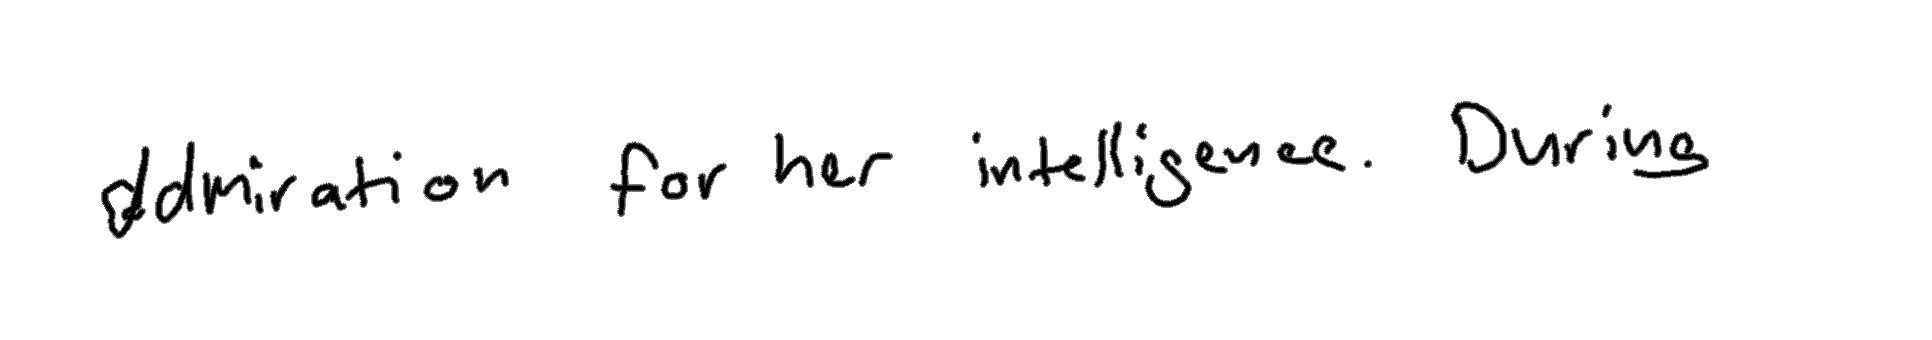 admiration for her intelligence. During